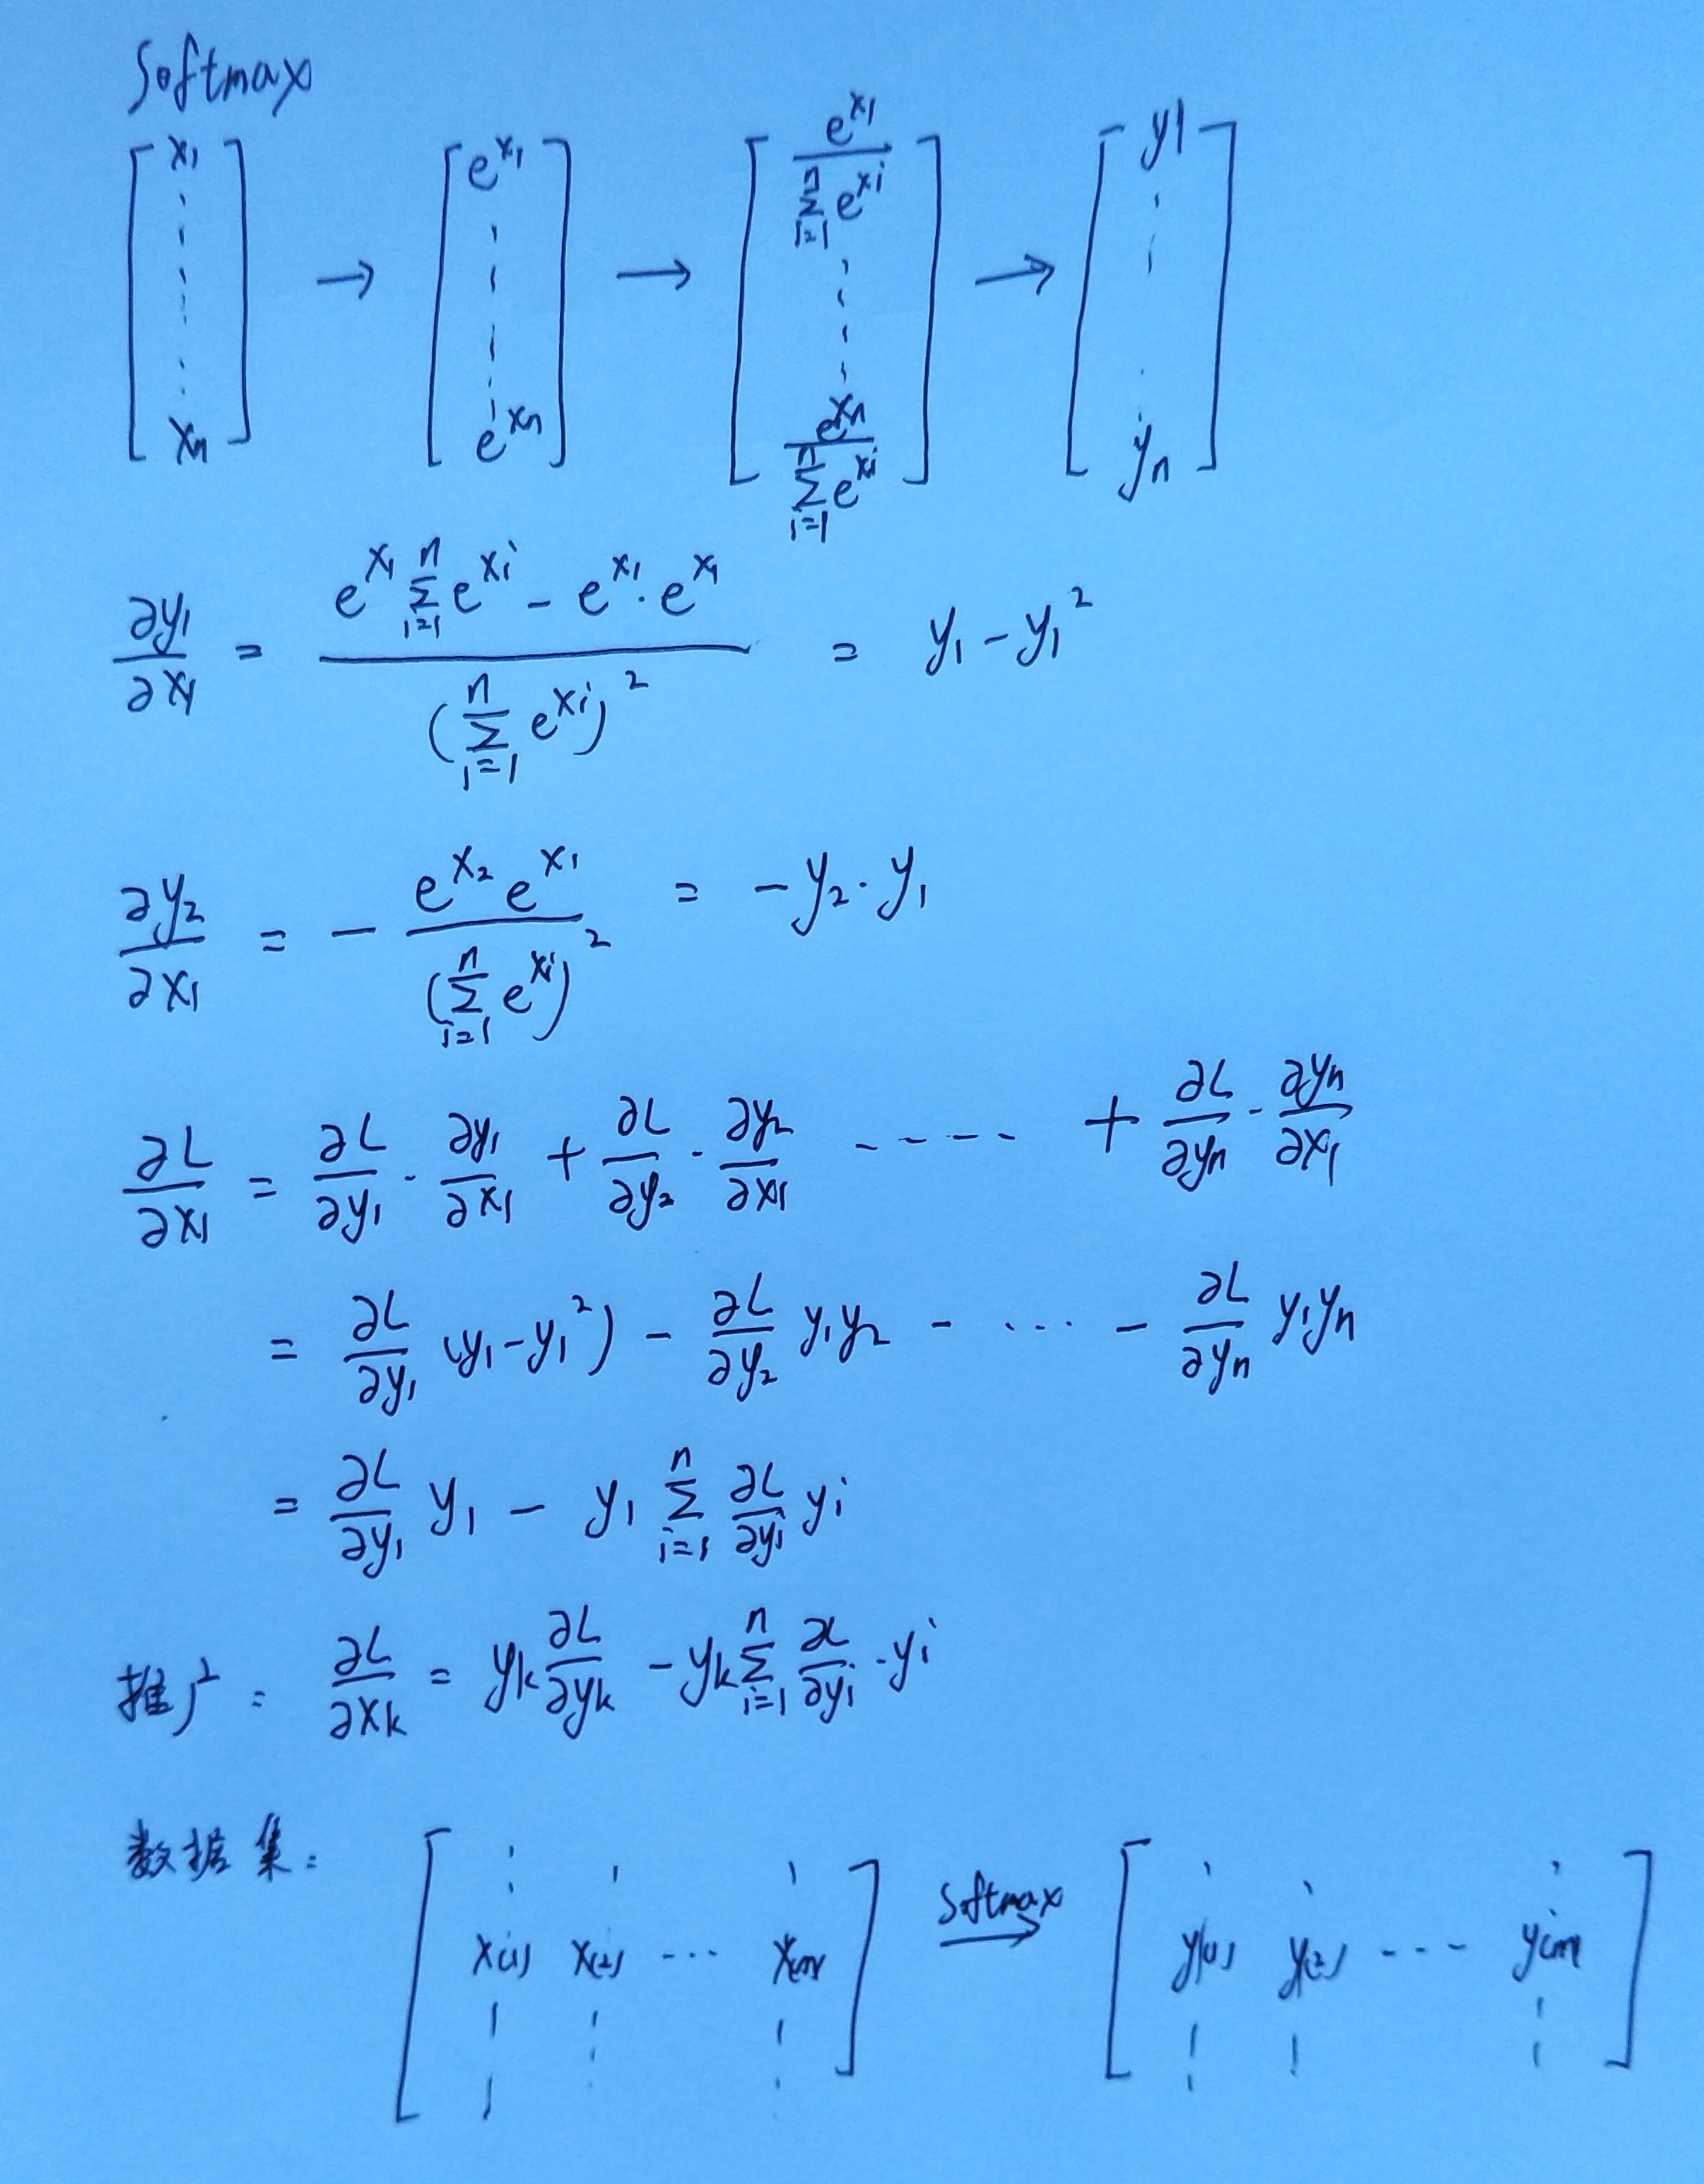 Softmax
[x₁ ⋮ xₙ] → [e^{x₁} ⋮ e^{xₙ}] → [e^{x₁}/∑_{i=1}^{n} e^{xi} ⋮ e^{xₙ}/∑_{i=1}^{n} e^{xi}] → [y1 ⋮ yₙ]
∂y₁/∂x₁ = (e^{x₁} ∑_{i=1}^{n} e^{xi} - e^{x₁}·e^{x₁}) / (∑_{i=1}^{n} e^{xi})² = y₁ - y₁²
∂y₂/∂x₁ = - e^{x₂} e^{x₁} / (∑_{i=1}^{n} e^{xi})² = -y₂·y₁
∂L/∂x₁ = ∂L/∂y₁ · ∂y₁/∂x₁ + ∂L/∂y₂ · ∂y₂/∂x₁ ----- + ∂L/∂yₙ · ∂yₙ/∂x₁
= ∂L/∂y₁ (y₁-y₁²) - ∂L/∂y₂ y₁y₂ - ... - ∂L/∂yₙ y₁yₙ
= ∂L/∂y₁ y₁ - y₁ ∑_{i=1}^{n} ∂L/∂yi yi
推广: ∂L/∂xk = yk ∂L/∂yk - yk ∑_{i=1}^{n} ∂L/∂yi · yi
数据集: [x(1) x(2) ... x(m)] Softmax→ [y(1) y(2) ---- y(m)]